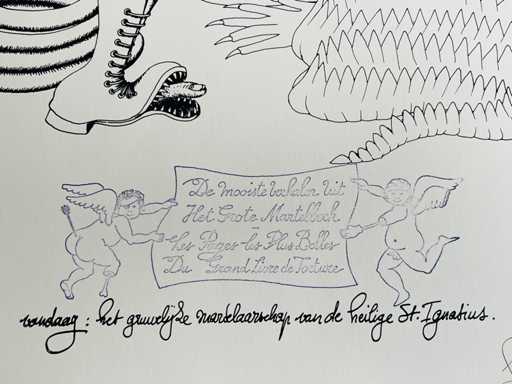 De mooiste verhalen uit
Het Grote Martelboek
Les Pages les Plus Belles
Du Grand Livre de Torture
vandaag : het gruwelijke martelaarschap van de heilige St. Ignasius.